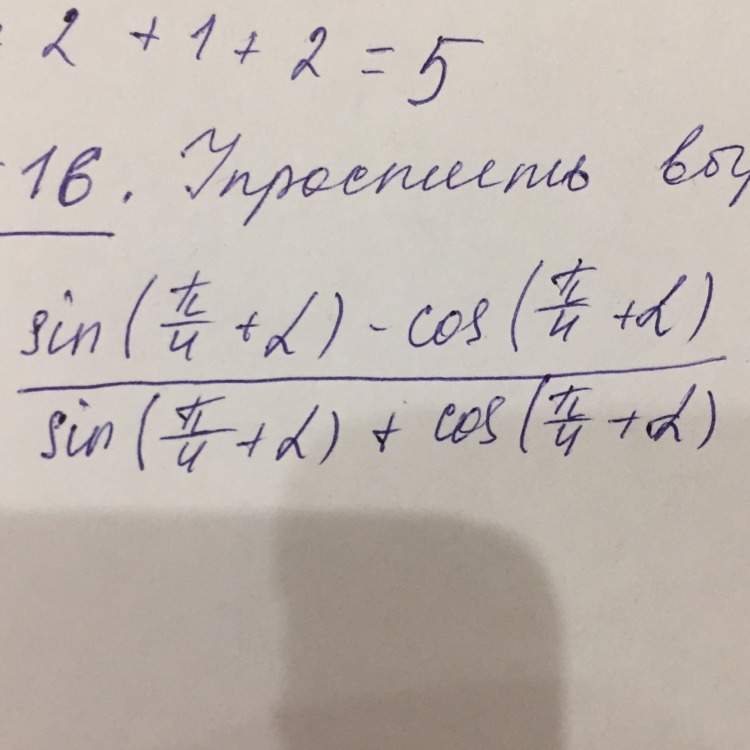 = 2 + 1 + 2 = 5
16. Упростить выр
sin(π/4 + α) - cos(π/4 + α)
sin(π/4 + α) + cos(π/4 + α)